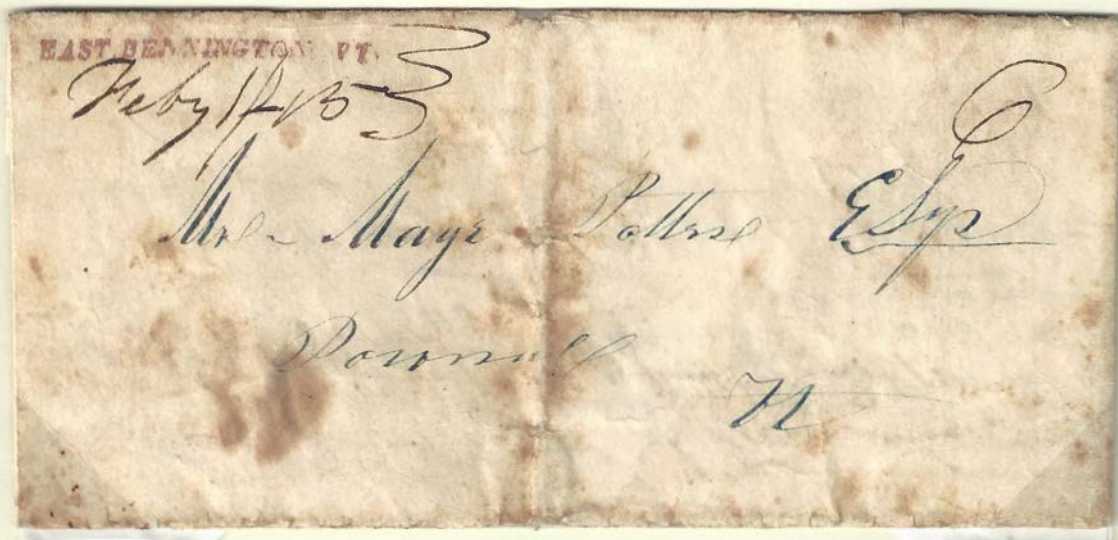 EAST BENNINGTON VT.
Feby
6
Mr Mayr Potter Esqr
Pownall
Vt